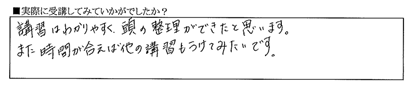 ■実際に受講してみていかがでしたか？
講習はわかりやすく、頭の整理ができたと思います。
また時間が合えば他の講習もうけてみたいです。